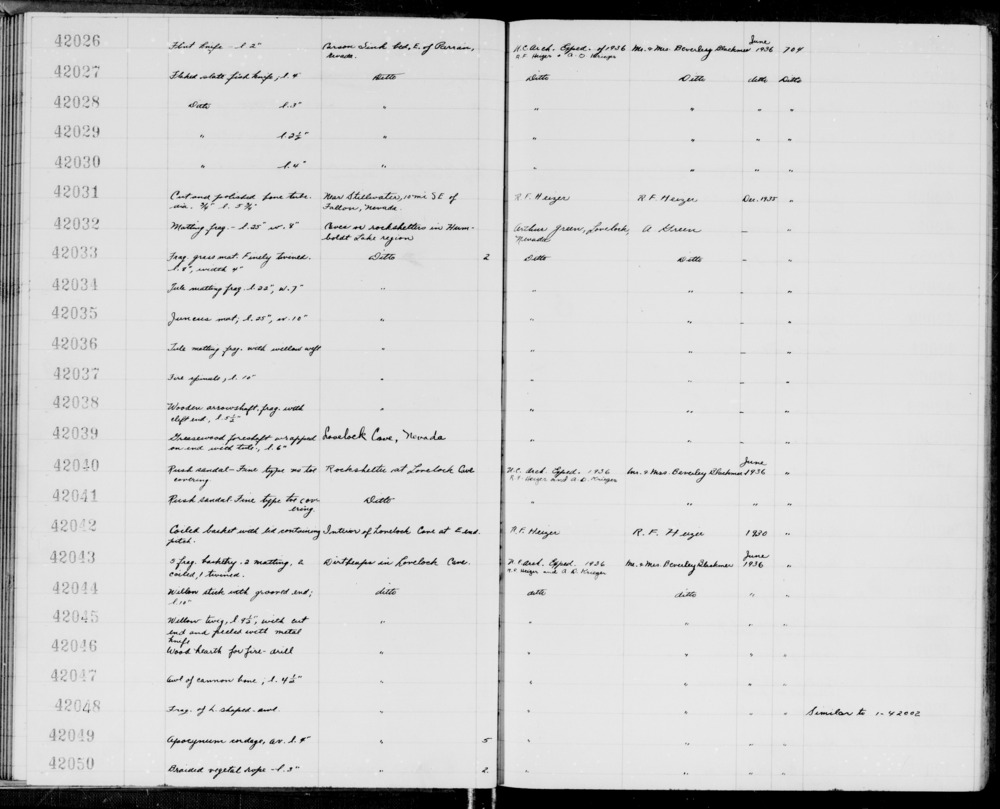 42026 Flint knife - l. 2" Carson Sink bed, E. of Parran, U.C. Arch. Exped. of 1936 Mr. & Mrs. Beverley Blackmer June 1936 704
Nevada. R.F. Heizer & A. D. Krieger
42027 Flaked slate fish knife, l. 4" Ditto Ditto Ditto ditto Ditto
42028 Ditto l. 3" " " " " "
42029 " l. 2½" " " " " "
42030 " l. 4" " " " " "
42031 Cut and polished bone tube. Near Stillwater, 10 mi SE of R. F. Heizer R. F. Heizer Dec. 1935 "
dia. l. Fallon, Nevada.
42032 Matting frag. - l. 25" w. 8" Caves or rockshelters in Hum- Arthur Green, Lovelock, A Green - "
boldt Lake region Nevada
42033 Frag. grass mat. Finely twined. Ditto 2 Ditto Ditto - "
l. 8", width 4"
42034 Tule matting frag. l. 22", w. 7" " " " - "
42035 Juncus mat, l. 25", w. 10" " " " - "
42036 Tule matting frag. with willow weft " " " - "
42037 Fire spindle, l. 10" " " " - "
42038 Wooden arrowshaft, frag. with " " " - "
cleft end, l. 5½"
42039 Greasewood foreshaft wrapped Lovelock Cave, Nevada " " - "
on end with tule, l. 6"
42040 Rush sandal - Fine type no toe Rockshelter at Lovelock Cave U.C. Arch. Exped. 1936 Mr. & Mrs. Beverley Blackmer June 1936 "
covering R.F. Heizer and A. D. Krieger
42041 Rush sandal Fine type toe cov- Ditto " " " "
ering.
42042 Coiled basket with lid containing Interior of Lovelock Cave at E end. R. F. Heizer R. F. Heizer 1930 "
pitch.
42043 5 frag. basketry. 2 matting, 2 Dirtheaps in Lovelock Cave. U.C. Arch. Exped. 1936 Mr. & Mrs. Beverley Blackmer June 1936 "
coiled, 1 twined. R.F. Heizer and A. D. Krieger
42044 Willow stick with grooved end; ditto ditto ditto " "
l. 10"
42045 Willow twig, l. 9½", with cut " " " " "
end and peeled with metal
knife
42046 Wood hearth for fire-drill " " " " "
42047 Awl of cannon bone; l. 4½" " " " " "
42048 Frag. of L shaped awl " " " " " Similar to 1-42002
42049 Apocynum cordage, av. l. 4" " 5 " " " "
42050 Braided vegetal rope - l. 3" " 2 " " " "